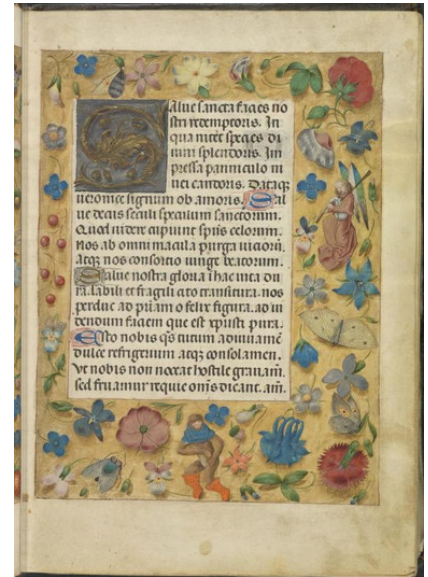 Salue sancta facies no
stri redemptoris. In
qua nitet species di
uini splendoris. Im
pressa panniculo ni
uei candoris. Dataqz
ueronice signum ob amoris. Sal
ue decus seculi speculum sanctorum.
Quod uidere cupiunt spūs celorum.
nos ab omni macula purga uiciorū.
atqz nos consortio iunge beatorum.
Salue nostra gloria ī hac uita du
ra. labili et fragili cito transitura. nos
perduc ad pr̄iam o felix figura. ad ui
dendum faciem que est xp̄isti pura.
Esto nobis qs̄ tutum adiuuamē
dulce refrigerium atqz consolamen.
Vt nobis non noceat hostile grauam̄.
sed fruamur requie om̄s dicant. am̄.